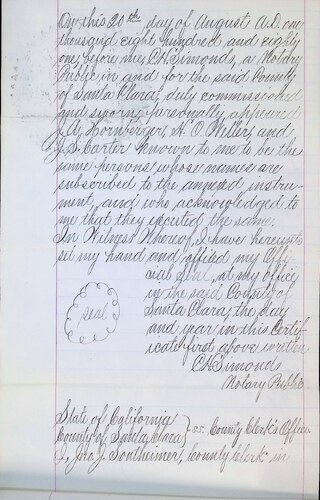 On this 20th day of August A.D. one
thousand eight hundred and eighty
one before me, C.H. Simonds, a Notary
Public in and for the said County
of Santa Clara, duly commissioned
and sworn, personally appeared
J.A. Hornberger, H.O. Weller, and
J.S. Carter known to me to be the
same persons whose names are
subscribed to the annexed instru-
ment, and who acknowledged to
me that they executed the same.
In Witness Whereof, I have hereunto
set my hand and affixed my Offi-
cial Seal, at my office
in the said County of
Santa Clara, the day
and year in this Certif-
icate first above written
seal
C.H. Simonds
Notary Public
State of California
County of Santa Clara } ss. County Clerk's Office
I, Jno. J. Sontheimer, County Clerk in